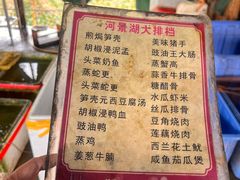 河景湖大排档
煎焗笋壳
胡椒浸泥孟
头菜奶鱼
蒸蛇更.
头菜蛇更
笋壳元西豆腐汤
胡椒浸鸭血
豉油鸭
蒸鸡
姜葱牛腩
美味猪手
豉油王大肠
蒸蟹高
蒜香牛排骨
糖醋骨
水瓜虾米
丝瓜排骨
豆角烧肉
莲藕烧肉
西兰花土鱿
咸鱼茄瓜煲